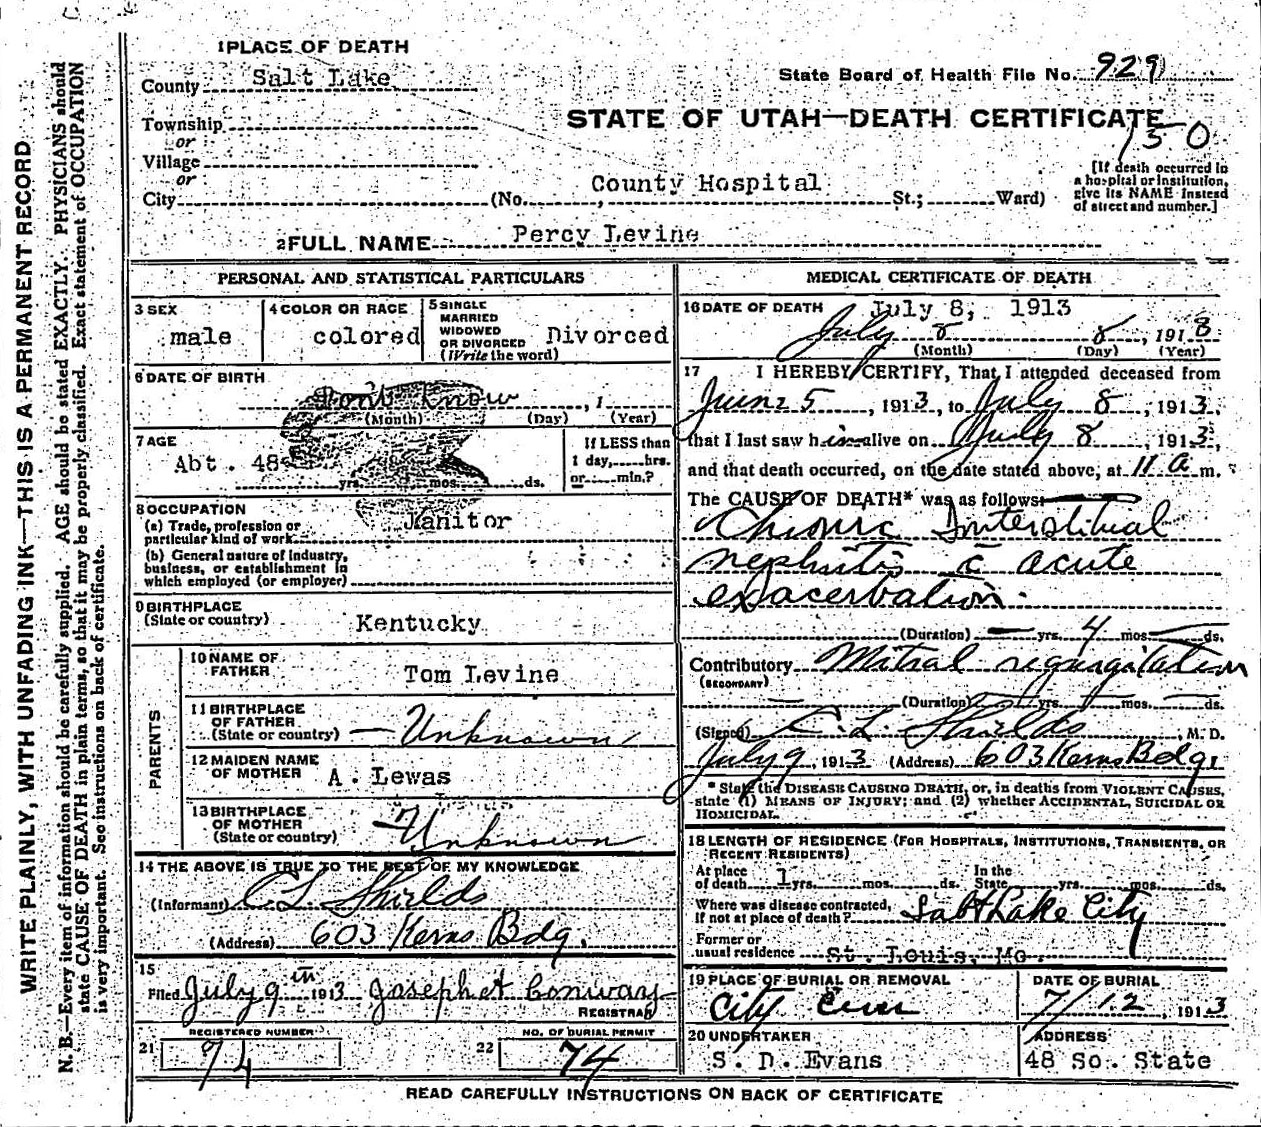 WRITE PLAINLY, WITH UNFADING INK—THIS IS A PERMANENT RECORD
N. B.—Every item of information should be carefully supplied. AGE should be stated EXACTLY. PHYSICIANS should
state CAUSE OF DEATH in plain terms, so that it may be properly classified. Exact statement of OCCUPATION
is very important. See instructions on back of certificate.
1 PLACE OF DEATH
County Salt Lake
State Board of Health File No. 929
Township
or
STATE OF UTAH—DEATH CERTIFICATE
150
Village
or
[If death occurred in
a hospital or institution,
give its NAME instead
of street and number.]
City (No. , County Hospital St.; Ward)
2 FULL NAME Percy Levine
PERSONAL AND STATISTICAL PARTICULARS
3 SEX
male
4 COLOR OR RACE
colored
5 SINGLE
MARRIED
WIDOWED
OR DIVORCED
(Write the word)
Divorced
6 DATE OF BIRTH
Dont Know , 1
(Month) (Day) (Year)
7 AGE
Abt. 48
yrs. mos. ds.
If LESS than
1 day, hrs.
or min.?
8 OCCUPATION
(a) Trade, profession or
particular kind of work Janitor
(b) General nature of industry,
business, or establishment in
which employed (or employer)
9 BIRTHPLACE
(State or country)
Kentucky
PARENTS
10 NAME OF
FATHER
Tom Levine
11 BIRTHPLACE
OF FATHER
(State or country) — Unknown
12 MAIDEN NAME
OF MOTHER
A. Lewas
13 BIRTHPLACE
OF MOTHER
(State or country) — Unknown
14 THE ABOVE IS TRUE TO THE BEST OF MY KNOWLEDGE
(Informant) C L Shields
(Address) 603 Kerns Bdg.
15
Filed July 9th 1913 Joseph H Conway
REGISTRAR
REGISTERED NUMBER
21 74
NO. OF BURIAL PERMIT
22 74
MEDICAL CERTIFICATE OF DEATH
16 DATE OF DEATH July 8, 1913
July 8 8 , 1913
(Month) (Day) (Year)
17 I HEREBY CERTIFY, That I attended deceased from
June 5 , 1913, to July 8 , 1913,
that I last saw him alive on July 8 , 1913,
and that death occurred, on the date stated above, at 11 a m.
The CAUSE OF DEATH* was as follows:
Chronic Interstitual
nephritis c̄ acute
exacerbation.
(Duration) — yrs. 4 mos. — ds.
Contributory Mitral regurgitation
(SECONDARY)
(Duration) yrs. mos. — ds.
(Signed) C L Shields , M. D.
July 9, 1913 (Address) 603 Kerns Bdg.
* State the DISEASE CAUSING DEATH, or, in deaths from VIOLENT CAUSES,
state (1) MEANS OF INJURY; and (2) whether ACCIDENTAL, SUICIDAL OR
HOMICIDAL.
18 LENGTH OF RESIDENCE (FOR HOSPITALS, INSTITUTIONS, TRANSIENTS, OR
RECENT RESIDENTS)
At place
of death 1 yrs. mos. ds.
In the
State yrs. mos. ds.
Where was disease contracted,
if not at place of death? Salt Lake City
Former or
usual residence St. Louis, Mo.
19 PLACE OF BURIAL OR REMOVAL
City Cem
DATE OF BURIAL
7/12, 1913
20 UNDERTAKER
S. D. Evans
ADDRESS
48 So. State
READ CAREFULLY INSTRUCTIONS ON BACK OF CERTIFICATE